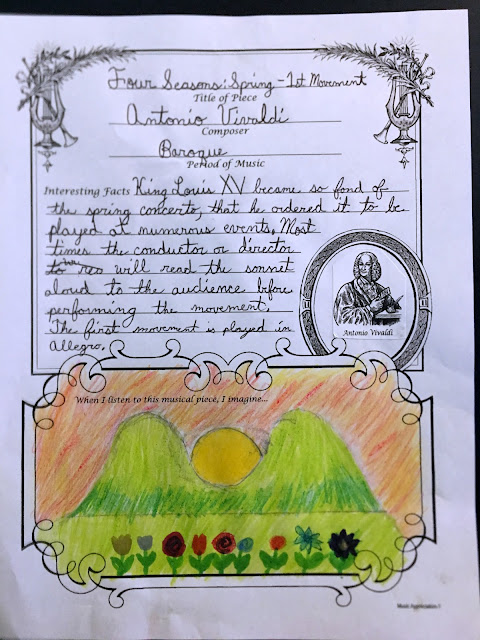 Four Seasons: Spring - 1st Movement
Title of Piece
Antonio Vivaldi
Composer
Baroque
Period of Music
Interesting Facts King Louis XV became so fond of
the spring concerto, that he ordered it to be
played at numerous events. Most
times the conductor or director
will read the sonnet
aloud to the audience before
performing the movement.
The first movement is played in
Allegro.
Antonio Vivaldi
When I listen to this musical piece, I imagine...
Music Appreciation 1